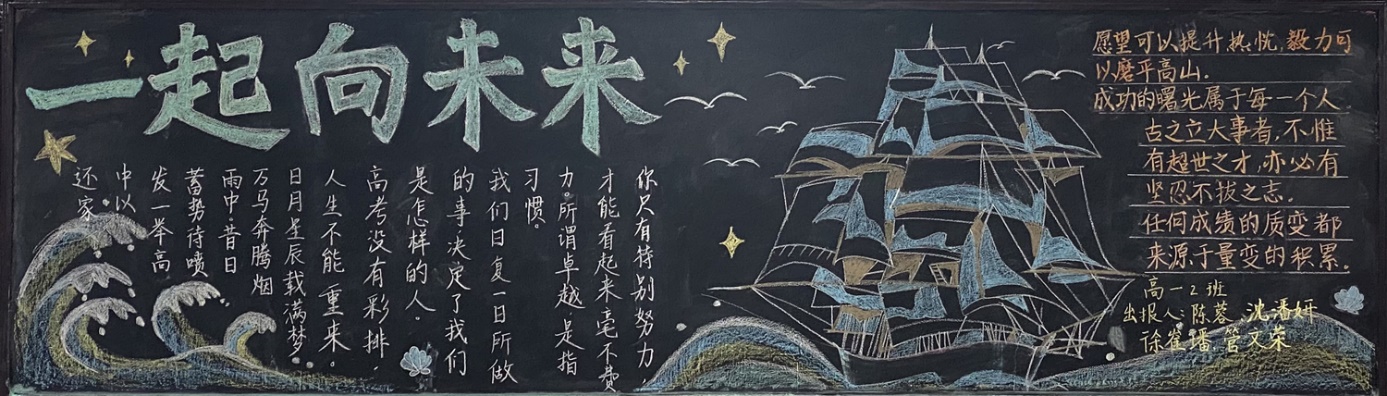 一起向未来
你只有特别努力
才能看起来毫不费
力。所谓卓越,是指
习惯。
我们日复一日所做
的事决定了我们
是怎样的人。
高考没有彩排,
人生不能重来。
日月星辰载满梦。
万马奔腾烟
雨中。昔日
蓄势待喷
发一举高
中以
还家
愿望可以提升热忱,毅力可
以磨平高山.
成功的曙光属于每一个人
古之立大事者,不惟
有超世之才,亦必有
坚忍不拔之志.
任何成绩的质变都
来源于量变的积累.
高一2班
出报人:陈蓉 沈潘妍
徐崔璠 管文荣